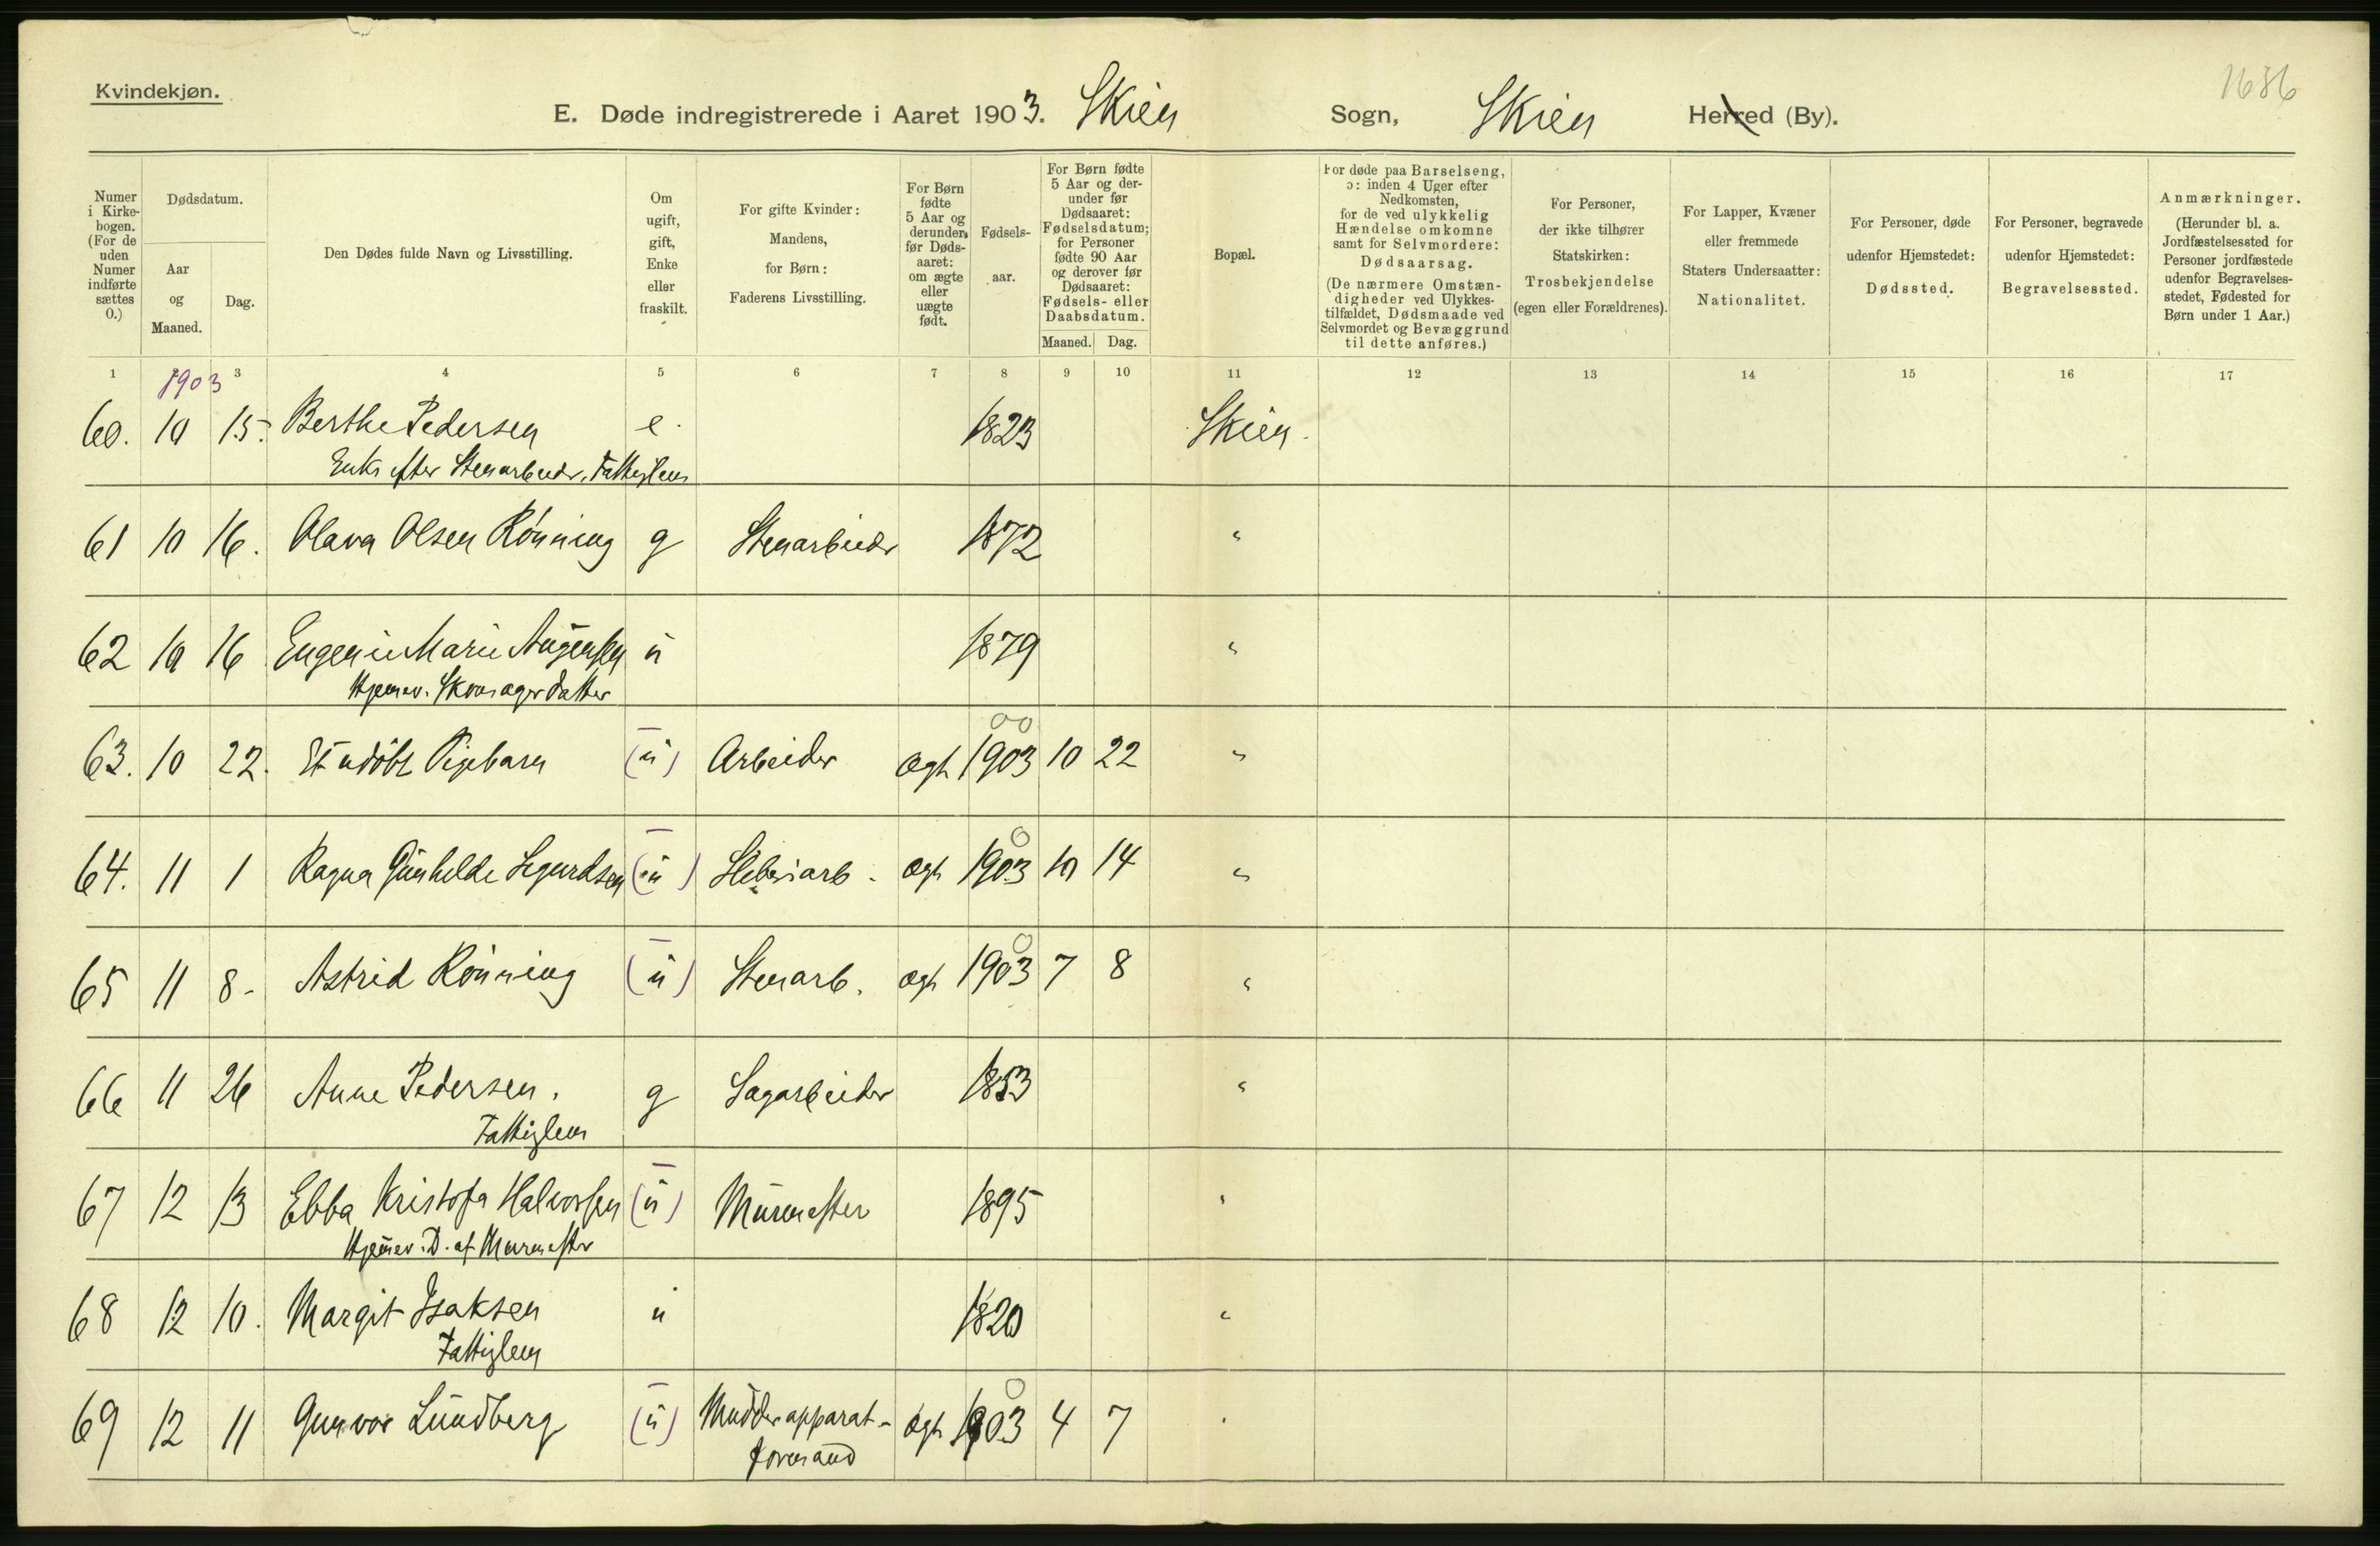 Kvindekjøn.
1686
E. Døde indregistrerede i Aaret 1903. Skien Sogn, Skien Herred (By).
Numer i Kirkebogen. (For de uden Numer indførte sættes 0.)
Dødsdatum.
Aar og Maaned.
Dag.
Den Dødes fulde Navn og Livsstilling.
Om ugift, gift, Enke eller fraskilt.
For gifte Kvinder: Mandens, for Børn: Faderens Livsstilling.
For Børn fødte 5 Aar og derunder før Dødsaaret: om ægte eller uægte født.
Fødselsaar.
For Børn fødte 5 Aar og derunder før Dødsaaret: Fødselsdatum; for Personer fødte 90 Aar og derover før Dødsaaret: Fødsels- eller Daabsdatum.
Maaned. Dag.
Bopæl.
For døde paa Barselseng, ɔ: inden 4 Uger efter Nedkomsten, for de ved ulykkelig Hændelse omkomne samt for Selvmordere: Dødsaarsag. (De nærmere Omstændigheder ved Ulykkestilfældet, Dødsmaade ved Selvmordet og Bevæggrund til dette anføres.)
For Personer, der ikke tilhører Statskirken: Trosbekjendelse (egen eller Forældrenes).
For Lapper, Kvæner eller fremmede Staters Undersaatter: Nationalitet.
For Personer, døde udenfor Hjemstedet: Dødssted.
For Personer, begravede udenfor Hjemstedet: Begravelsessted.
Anmærkninger. (Herunder bl. a. Jordfæstelsessted for Personer jordfæstede udenfor Begravelsesstedet, Fødested for Børn under 1 Aar.)
1 3 4 5 6 7 8 9 10 11 12 13 14 15 16 17
1903
60. 10 15. Berthe Pedersen e. 1823 Skien.
Enke efter Stenarbeider, Fattiglem
61 10 16. Olava Olsen Rönning g Stenarbeider 1872 "
62 10 16 Eugenie Marie Augensen u 1879 "
Hjemmev. Skomager Datter
63. 10 22. Et udöbt Pigebarn (u) Arbeider ægt 1903 10 22 "
64. 11 1 Ragna Gunhilde Sigurdsen (u) Sliberiarb. ægt 1903 10 14 "
65 11 8- Astrid Rönning (u) Stenarb. ægt 1903 7 8 "
66 11 26 Anne Pedersen. g Sagarbeider 1853 "
Fattiglem
67 12 13 Ebba Kristofa Halvorsen (u) Murmester 1895 "
Hjemmev. D. af Murmester
68 12 10. Margit Isaksen u 1820 "
Fattiglem
69 12 11 Gunvor Lundberg (u) Mudderapparat- ægt 1903 4 7 "
formand